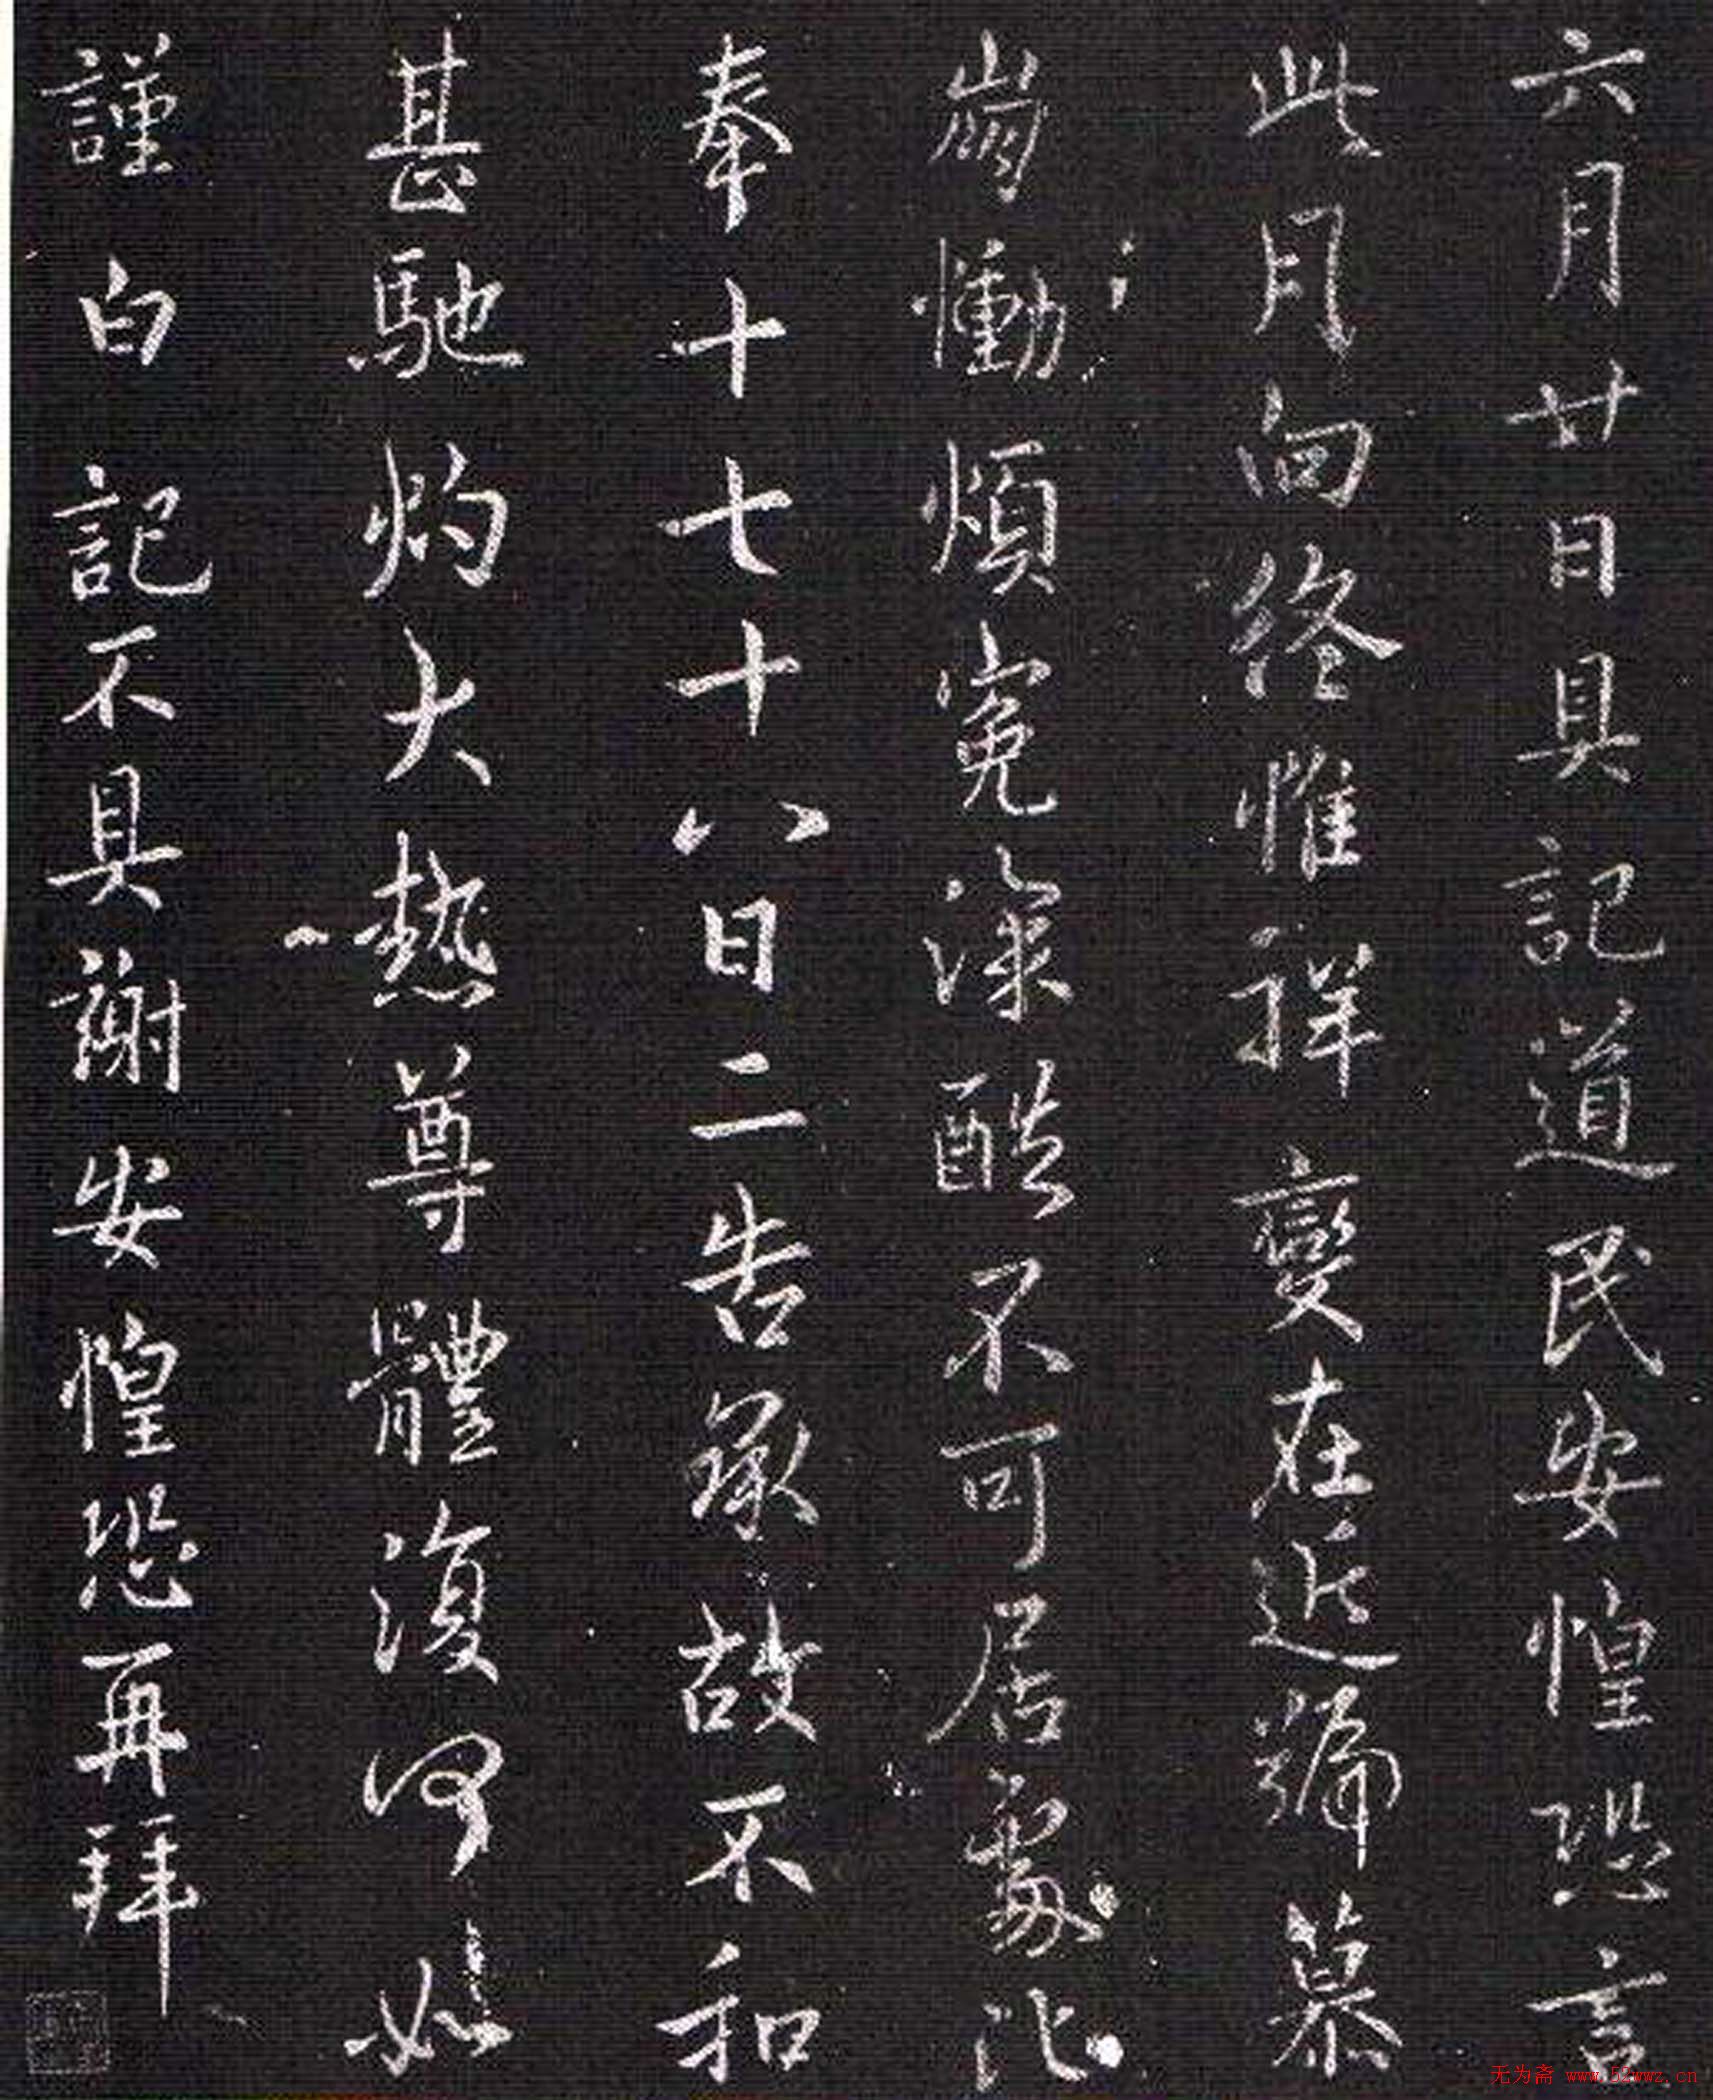 六月廿日具記道民安惶恐言
此月向終惟祥變在近號慕
崩慟煩冤深酷不可居處比
奉十七十八日二告承故不和
甚馳灼大熱尊體復何如
謹白記不具謝安惶恐再拜
无为斋 www.52wwz.cn